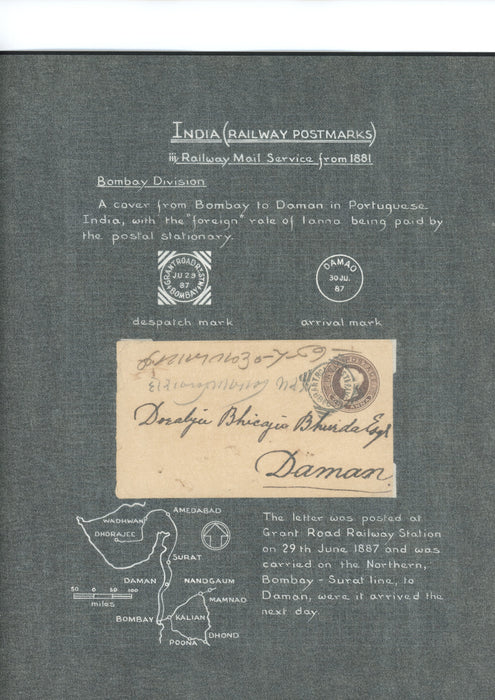 INDIA (RAILWAY POSTMARKS)
iii, Railway Mail Service from 1881
Bombay Division
A cover from Bombay to Daman in Portuguese
India, with the "foreign" rate of 1 anna being paid by
the postal stationary.
GRANT ROAD RY. STN.
JU 29
87
BOMBAY
DAMAO
30 JU.
87
despatch mark
arrival mark
Daman
AMEDABAD
WADHWAN
DHORAJEE
SURAT
DAMAN
NANDGAUM
MAMNAD
50 0 50 100
miles
BOMBAY
KALIAN
DHOND
POONA
The letter was posted at
Grant Road Railway Station
on 29th June 1887 and was
carried on the Northern,
Bombay - Surat line, to
Daman, were it arrived the
next day.